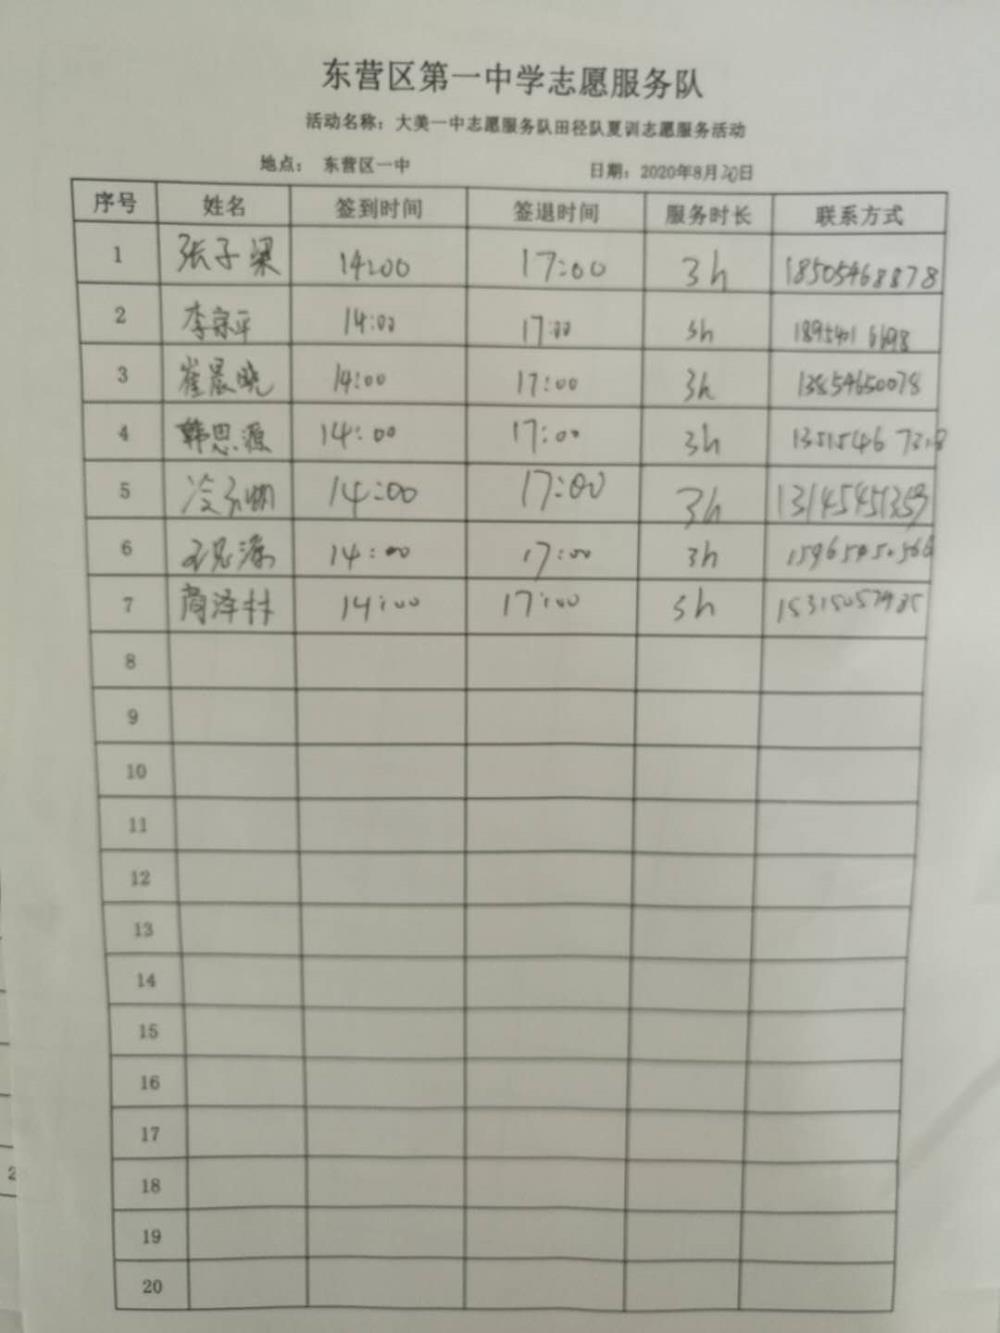 东营区第一中学志愿服务队
活动名称：大美一中志愿服务队田径队夏训志愿服务活动
地点： 东营区一中 日期：2020年8月20日
序号 姓名 签到时间 签退时间 服务时长 联系方式
1 张子梁 14:00 17:00 3h 18505468878
2 李宗平 14:00 17:00 3h
3 崔晨晓 14:00 17:00 3h 13854650078
4 韩思源 14:00 17:00 3h
5 14:00 17:00 3h 13145451359
6 14:00 17:00 3h
7 14:00 17:00 3h
8
9
10
11
12
13
14
15
16
17
18
19
20
2